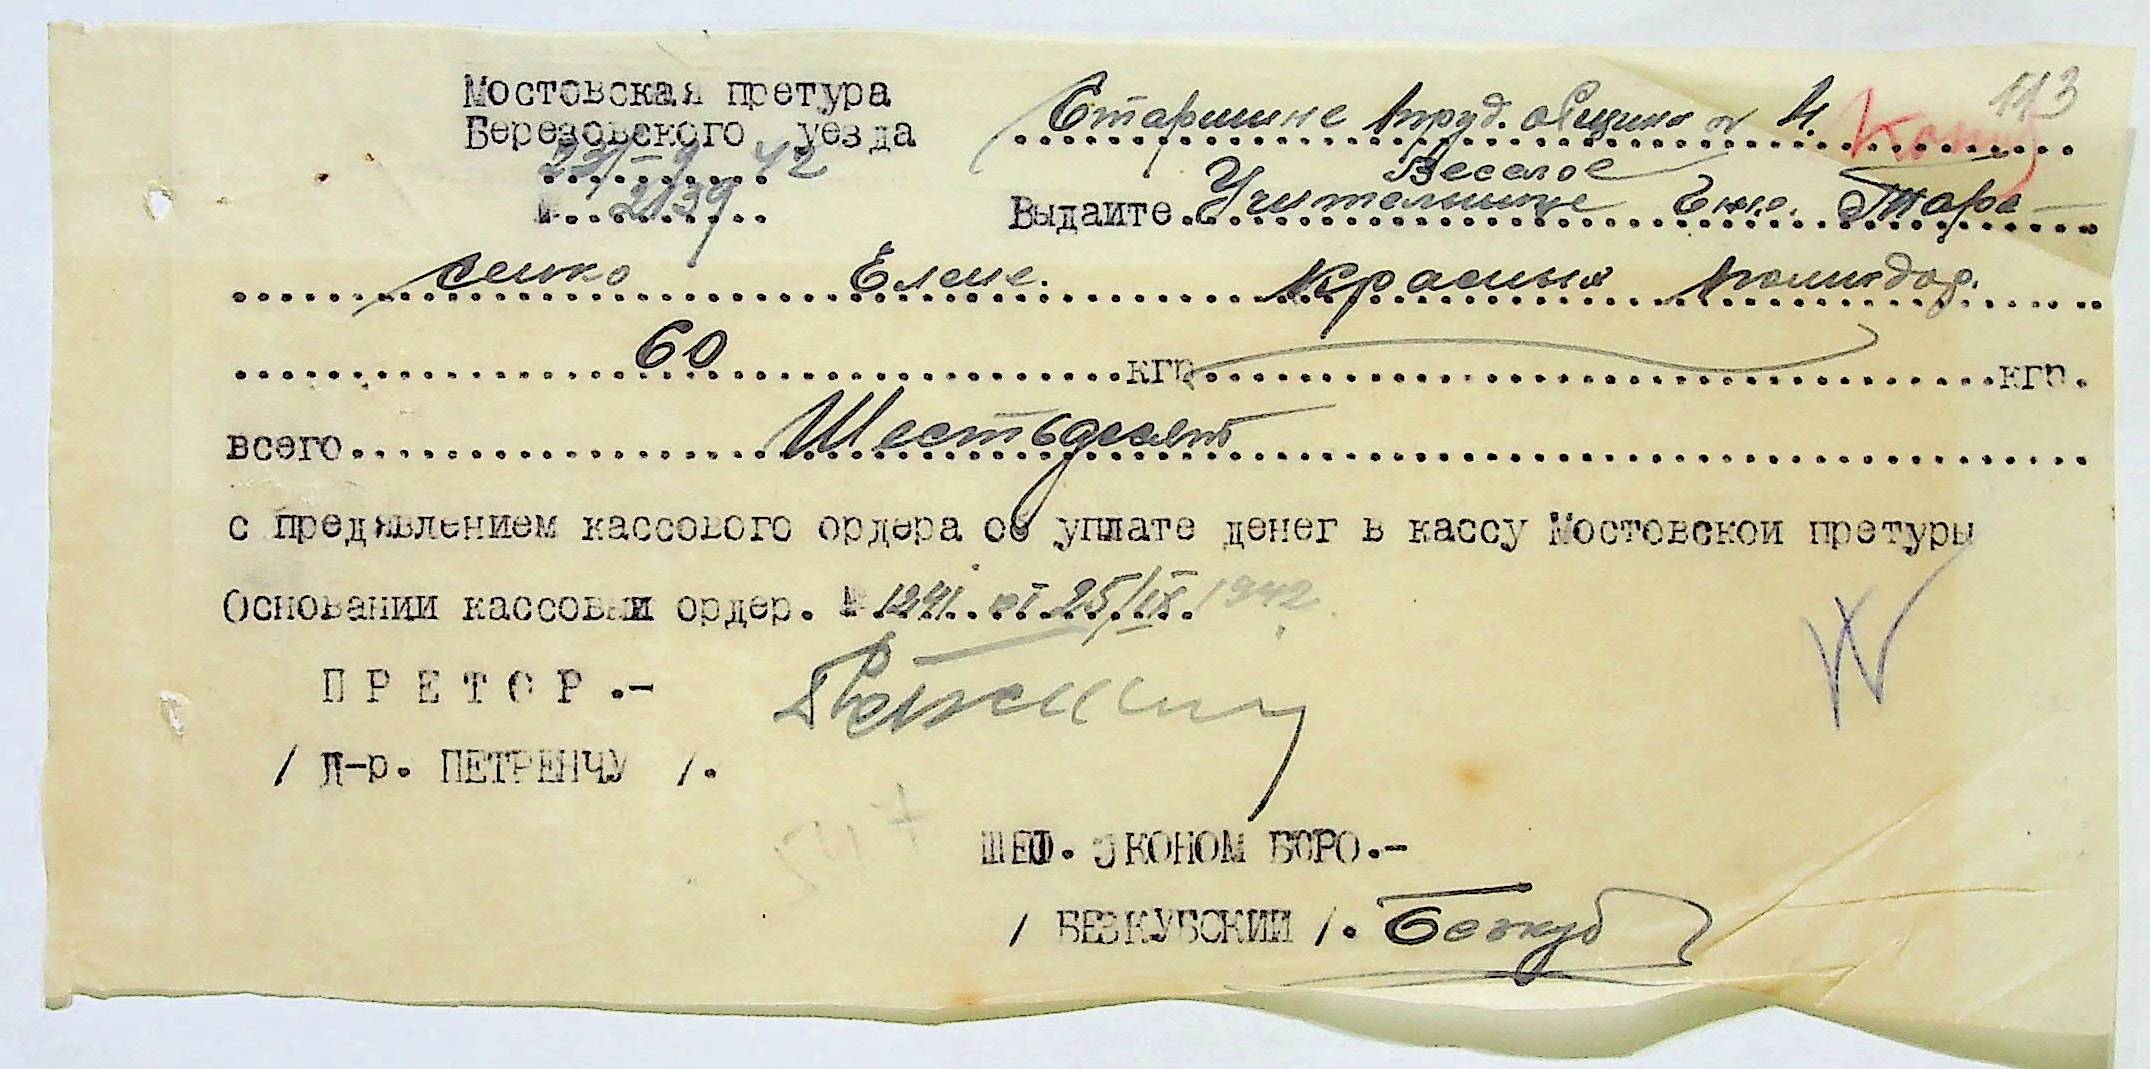 113
Мостовская претура
Березовского уезда
Старшине труд. общины
42
Веселое
№ 2139
Выдаите Учительнице Тара-
сенко Елене. Красных помидор.
60 кгр. кгр.
всего Шестьдесят
с предявлением кассового ордера об уплате денег в кассу Мостовскои претуры
Основании кассоваи ордер. № 1241. от 25/IX. 1942
ПРЕТОР.-
/ Д-р. ПЕТРЕНЧУ /.
ШЕФ. ЭКОНОМ БЮРО.-
/ БЕЗКУБСКИЙ /. Безкуб